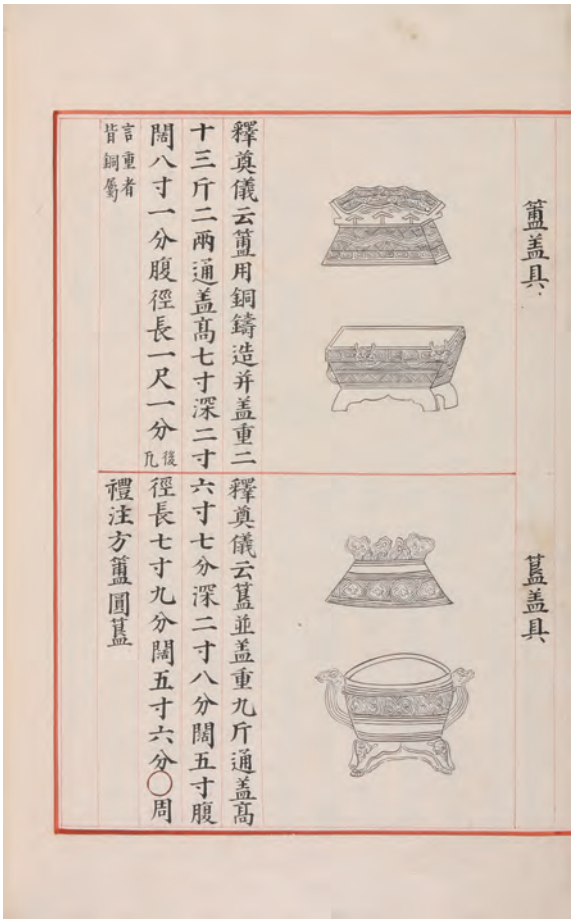 簠盖具
釋奠儀云簠用銅鑄造并盖重二
十三斤二兩通盖髙七寸深二寸
闊八寸一分腹徑長一尺一分後凡
言重者
皆銅屬
簋盖具
釋奠儀云簋並盖重九斤通盖髙
六寸七分深二寸八分闊五寸腹
徑長七寸九分闊五寸六分〇周
禮注方簠圓簋